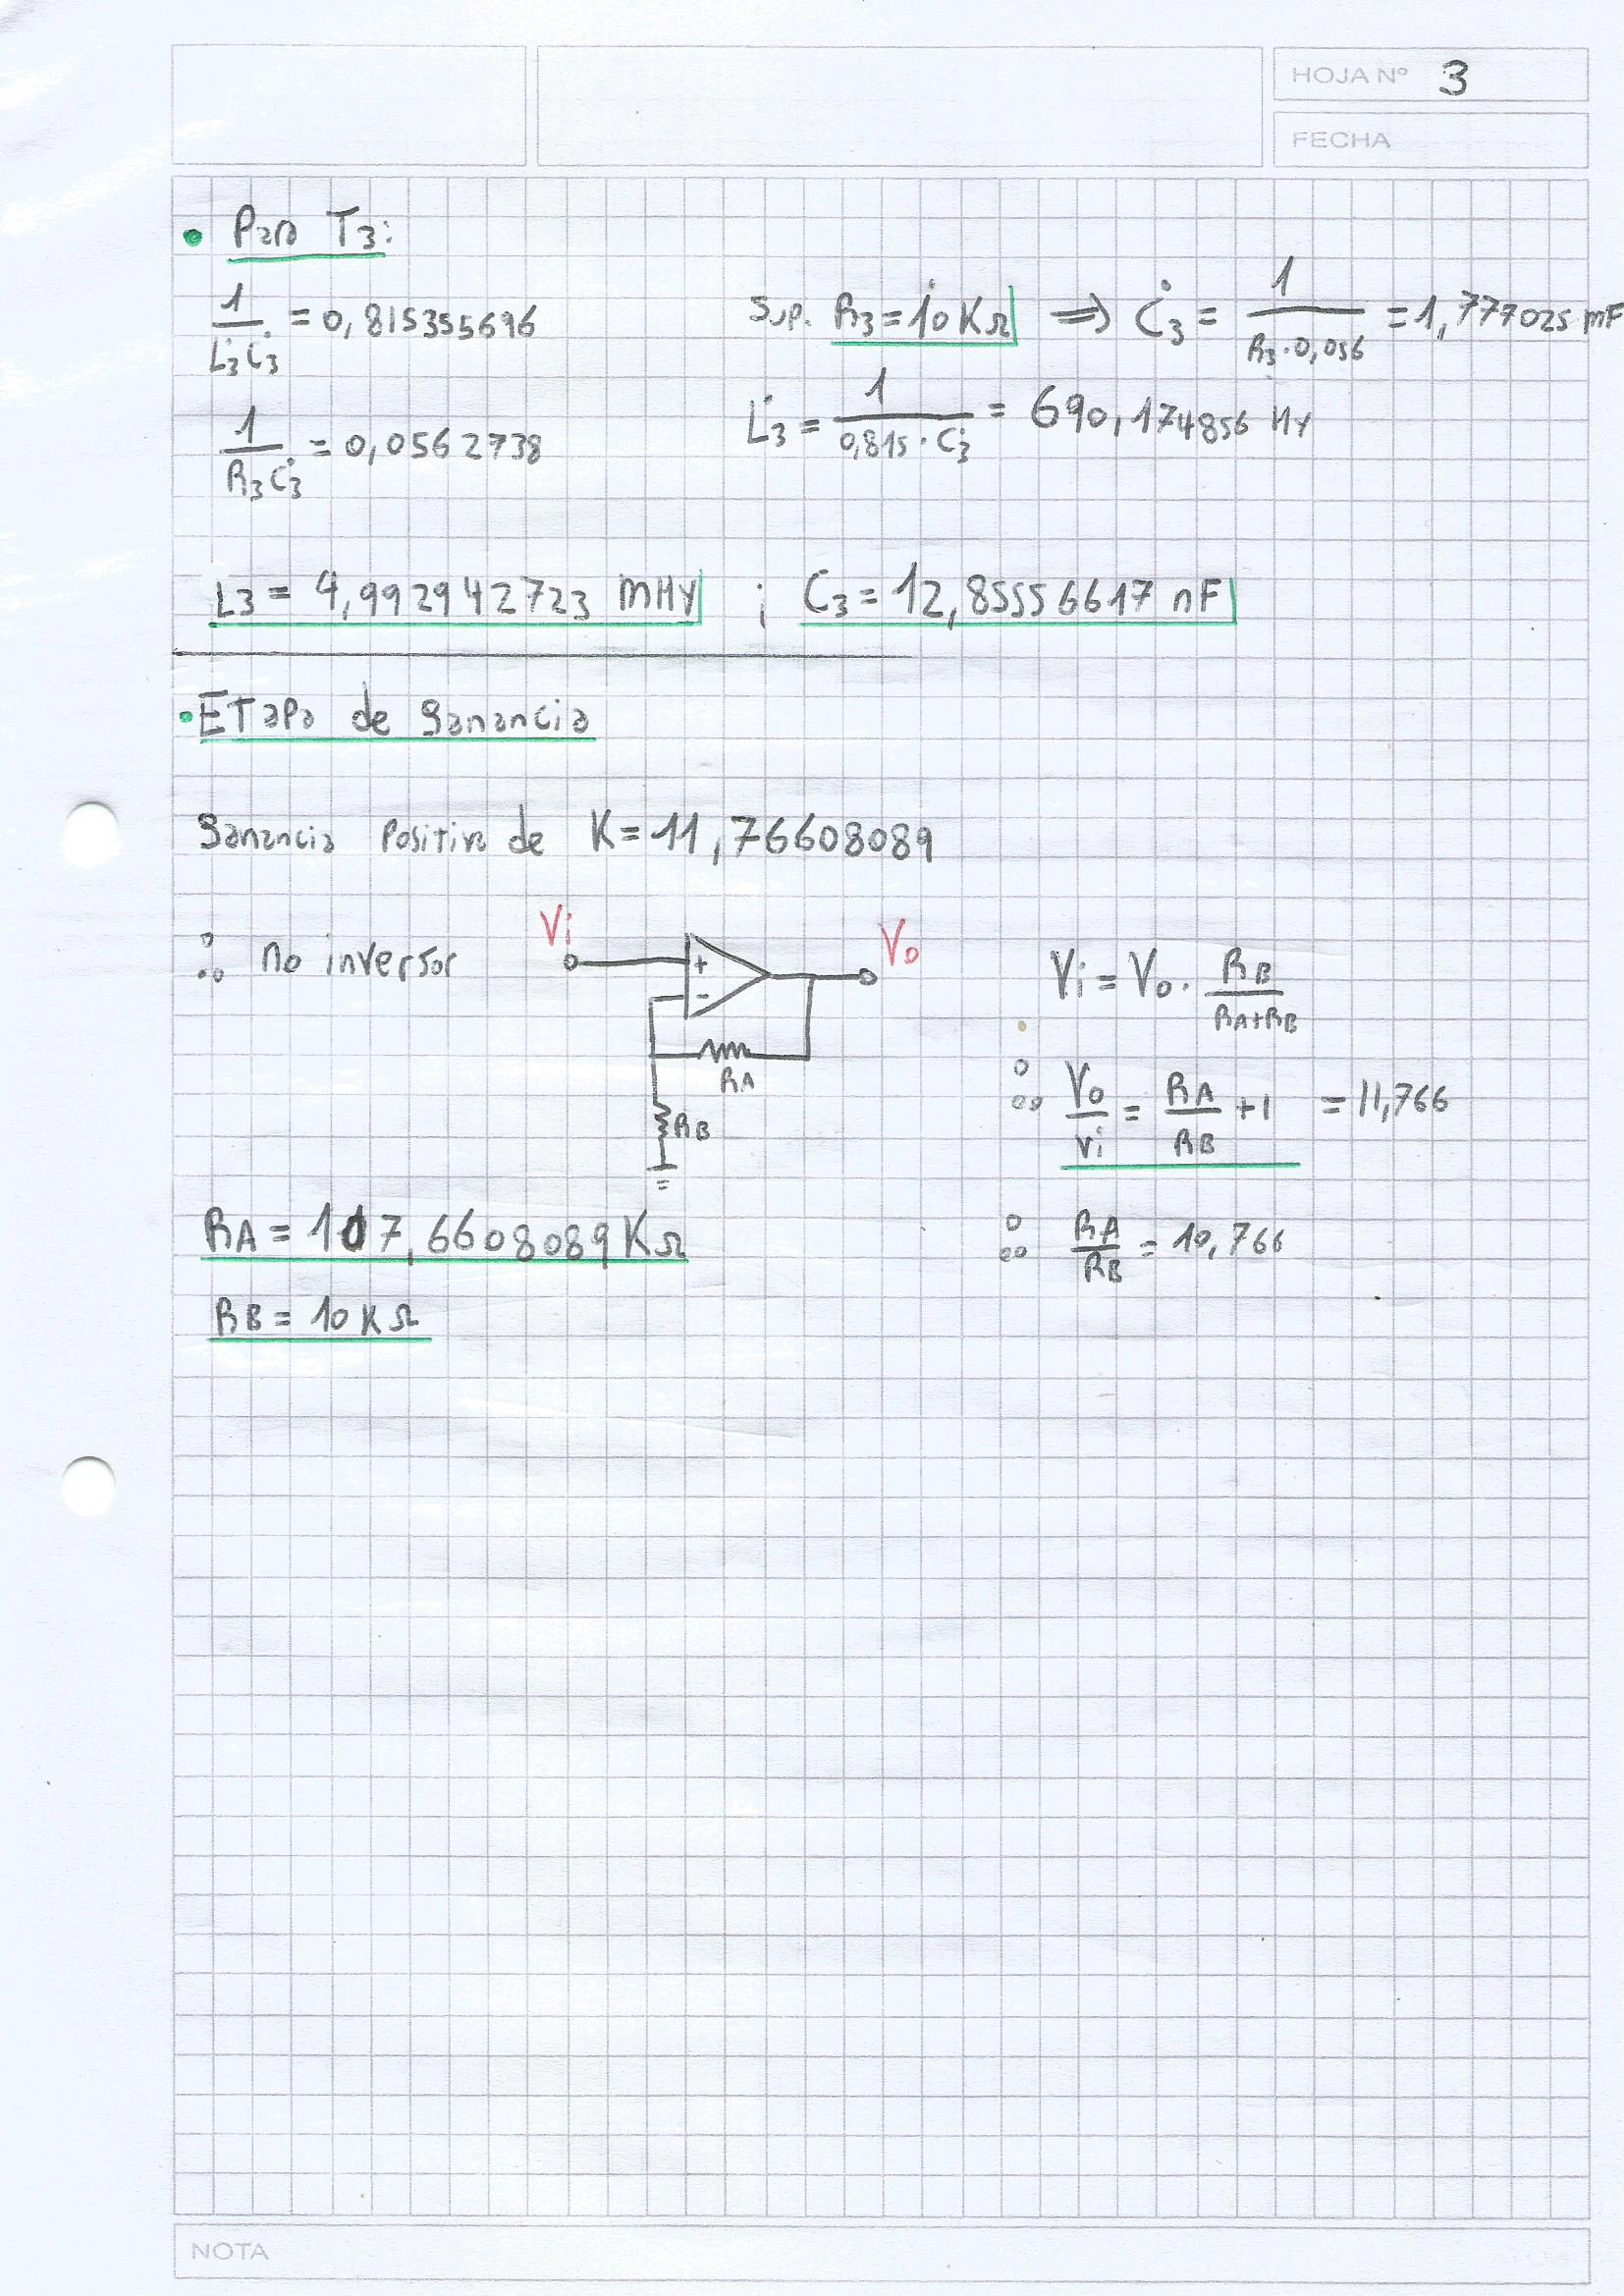 HOJA Nº 3
FECHA
• Para T3:
1/(L̇3 Ċ3) = 0,815355696
Sup. Ṙ3 = 10 KΩ ⇒ Ċ3 = 1/(R3 · 0,056) = 1,777025 mF
1/(R3 Ċ3) = 0,0562738
L̇3 = 1/(0,815 · Ċ3) = 690,174856 Hy
L3 = 4,992942723 mHy ; C3 = 12,85556617 nF
• Etapa de Ganancia
Ganancia Positiva de K = 11,76608089
∴ no inversor
Vi
+
-
Vo
RA
RB
Vi = Vo · RB/(RA+RB)
∴ Vo/Vi = RA/RB + 1 = 11,766
RA = 107,6608089 KΩ
∴ RA/RB = 10,766
RB = 10 KΩ
NOTA